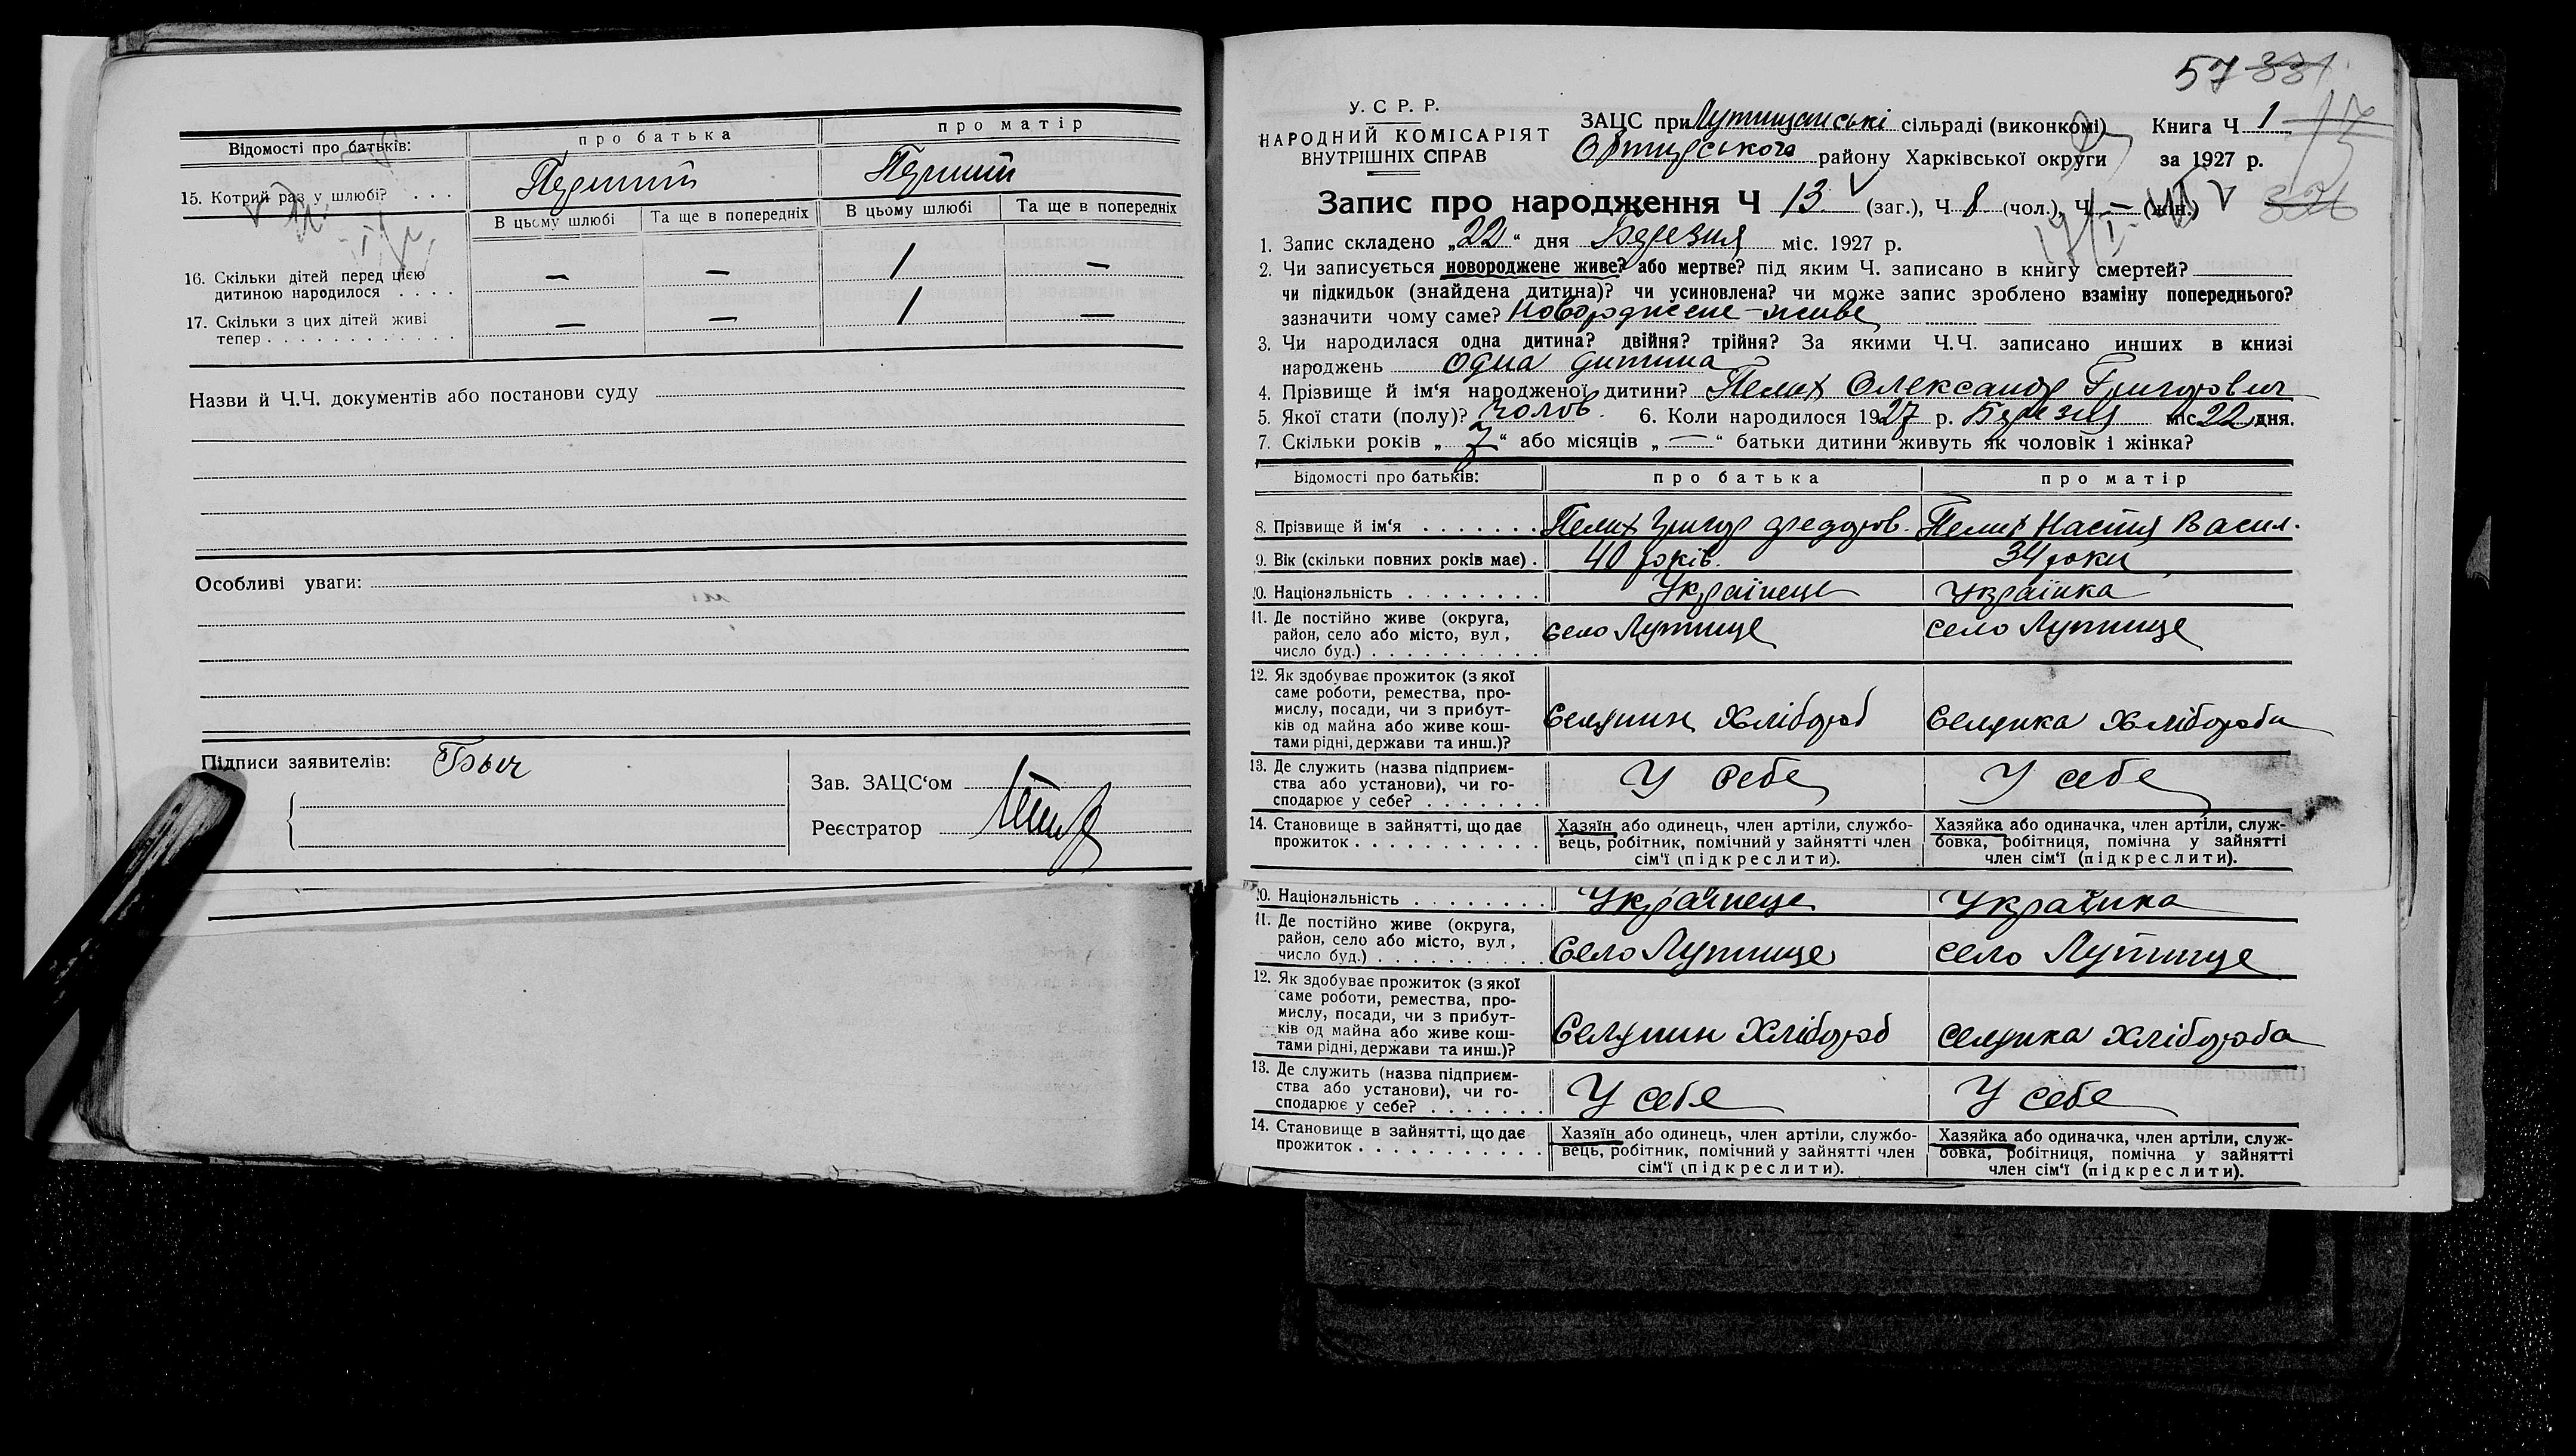 Відомості про батьків:
про батька
про матір
15. Котрий раз у шлюбі? . . .
Перший
Перший
В цьому шлюбі
Та ще в попередніх
В цьому шлюбі
Та ще в попередніх
16. Скільки дітей перед цією
дитиною народилося . . . .
—
—
1
—
17. Скільки з цих дітей живі
тепер . . . . . . . . . . . .
—
—
1
—
Назви й Ч.Ч. документів або постанови суду
Особливі уваги:
Підписи заявителів:
Зав. ЗАЦС‘ом
Реєстратор
57 331
У. С Р. Р.
НАРОДНИЙ КОМІСАРІЯТ
ВНУТРІШНІХ СПРАВ
ЗАЦС при Лутищанські сільраді (виконкомі)
Книга Ч 1
Охтирського району Харківської округи
за 1927 р.
326
Запис про народження Ч 13 (заг.), Ч 8 (чол.), Ч — (жін.)
1. Запис складено „22“ дня Березня міс. 1927 р.
2. Чи записується новороджене живе? або мертве? під яким Ч. записано в книгу смертей?
чи підкидьок (знайдена дитина)? чи усиновлена? чи може запис зроблено взаміну попереднього?
зазначити чому саме? Новороджене-живе
3. Чи народилася одна дитина? двійня? трійня? За якими Ч.Ч. записано инших в книзі
народжень одна дитина
4. Прізвище й ім‘я народженої дитини? Пелих Олександр Григорович
5. Якої стати (полу)? Чолов. 6. Коли народилося 1927 р. Березня міс. 22 дня.
7. Скільки років „7“ або місяців „—“ батьки дитини живуть як чоловік і жінка?
Відомості про батьків:
про батька
про матір
8. Прізвище й ім‘я . . . . . . .
Пелих Григор Федоров.
Пелих Настя Васил.
9. Вік (скільки повних років має) .
40 років.
34 роки
10. Національність . . . . . . . .
Українець
Українка
11. Де постійно живе (округа,
район, село або місто, вул,
число буд.) . . . . . . . . . .
село Лутище
село Лутище
12. Як здобуває прожиток (з якої
саме роботи, ремества, про-
мислу, посади, чи з прибут-
ків од майна або живе кош-
тами рідні, держави та инш.)?
Селянин Хлібороб
Селянка Хлібороба
13. Де служить (назва підприєм-
ства або установи), чи го-
сподарює у себе? . . . . . . .
У себе
У себе
14. Становище в зайнятті, що дає
прожиток . . . . . . . . . . .
Хазяїн або одинець, член артіли, службо-
вець, робітник, помічний у зайнятті член
сім‘ї (підкреслити).
Хазяйка або одиначка, член артіли, служ-
бовка, робітниця, помічна у зайнятті
член сім‘ї (підкреслити).
10. Національність . . . . . . . .
Українець
Українка
11. Де постійно живе (округа,
район, село або місто, вул,
число буд.) . . . . . . . . . .
Село Лутище
село Лутище
12. Як здобуває прожиток (з якої
саме роботи, ремества, про-
мислу, посади, чи з прибут-
ків од майна або живе кош-
тами рідні, держави та инш.)?
Селянин Хлібороб
Селянка Хлібороба
13. Де служить (назва підприєм-
ства або установи), чи го-
сподарює у себе? . . . . . . .
У себе
У себе
14. Становище в зайнятті, що дає
прожиток . . . . . . . . . . .
Хазяїн або одинець, член артіли, службо-
вець, робітник, помічний у зайнятті член
сім‘ї (підкреслити).
Хазяйка або одиначка, член артіли, служ-
бовка, робітниця, помічна у зайнятті
член сім‘ї (підкреслити).